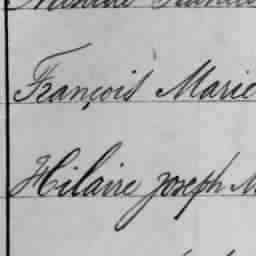 François Marie
Hilaire Joseph M